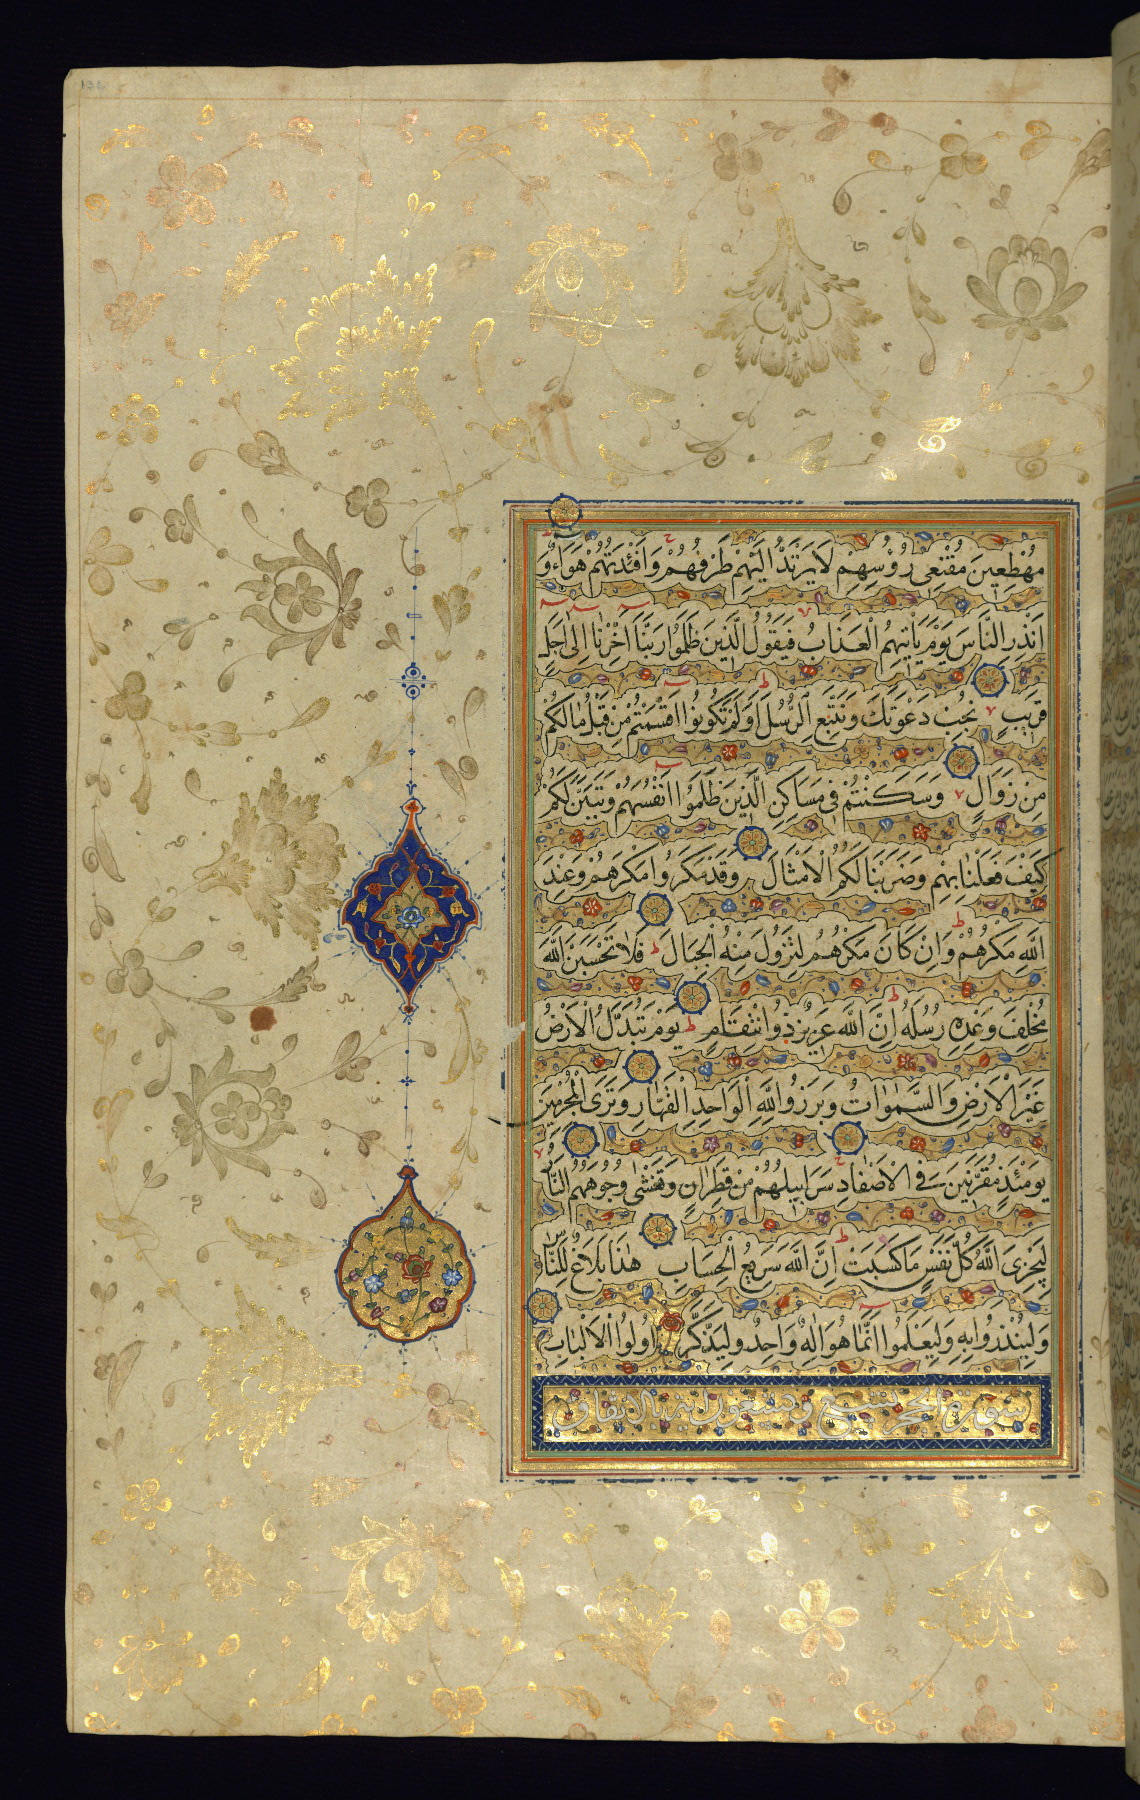 مُهْطِعِينَ مُقْنِعِى رُؤُسِهِمْ لَا يَرْتَدُّ اِلَيْهِمْ طَرْفُهُمْ وَاَفْئِدَتُهُمْ هَوَاءٌ وَ
اَنْذِرِ النَّاسَ يَوْمَ يَأْتِيهِمُ الْعَذَابُ فَيَقُولُ الَّذِينَ ظَلَمُوا رَبَّنَا اَخِّرْنَا اِلٰى اَجَلٍ
قَرِيبٍ نُجِبْ دَعْوَتَكَ وَنَتَّبِعِ الرُّسُلَ اَوَلَمْ تَكُونُوا اَقْسَمْتُمْ مِنْ قَبْلُ مَا لَكُمْ
مِنْ زَوَالٍ وَسَكَنْتُمْ فِى مَسَاكِنِ الَّذِينَ ظَلَمُوا اَنْفُسَهُمْ وَتَبَيَّنَ لَكُمْ
كَيْفَ فَعَلْنَا بِهِمْ وَضَرَبْنَا لَكُمُ الْاَمْثَالَ وَقَدْ مَكَرُوا مَكْرَهُمْ وَعِنْدَ
اللّٰهِ مَكْرُهُمْ وَاِنْ كَانَ مَكْرُهُمْ لِتَزُولَ مِنْهُ الْجِبَالُ فَلَا تَحْسَبَنَّ اللّٰهَ
مُخْلِفَ وَعْدِهِ رُسُلَهُ اِنَّ اللّٰهَ عَزِيزٌ ذُو انْتِقَامٍ يَوْمَ تُبَدَّلُ الْاَرْضُ
غَيْرَ الْاَرْضِ وَالسَّمٰوَاتُ وَبَرَزُوا لِلّٰهِ الْوَاحِدِ الْقَهَّارِ وَتَرَى الْمُجْرِمِينَ
يَوْمَئِذٍ مُقَرَّنِينَ فِى الْاَصْفَادِ سَرَابِيلُهُمْ مِنْ قَطِرَانٍ وَتَغْشٰى وُجُوهَهُمُ النَّارُ
لِيَجْزِىَ اللّٰهُ كُلَّ نَفْسٍ مَا كَسَبَتْ اِنَّ اللّٰهَ سَرِيعُ الْحِسَابِ هٰذَا بَلَاغٌ لِلنَّاسِ
وَلِيُنْذَرُوا بِهِ وَلِيَعْلَمُوا اَنَّمَا هُوَ اِلٰهٌ وَاحِدٌ وَلِيَذَّكَّرَ اُولُوا الْاَلْبَابِ
سورة الحجر تسع وتسعون اية بالاتفاق